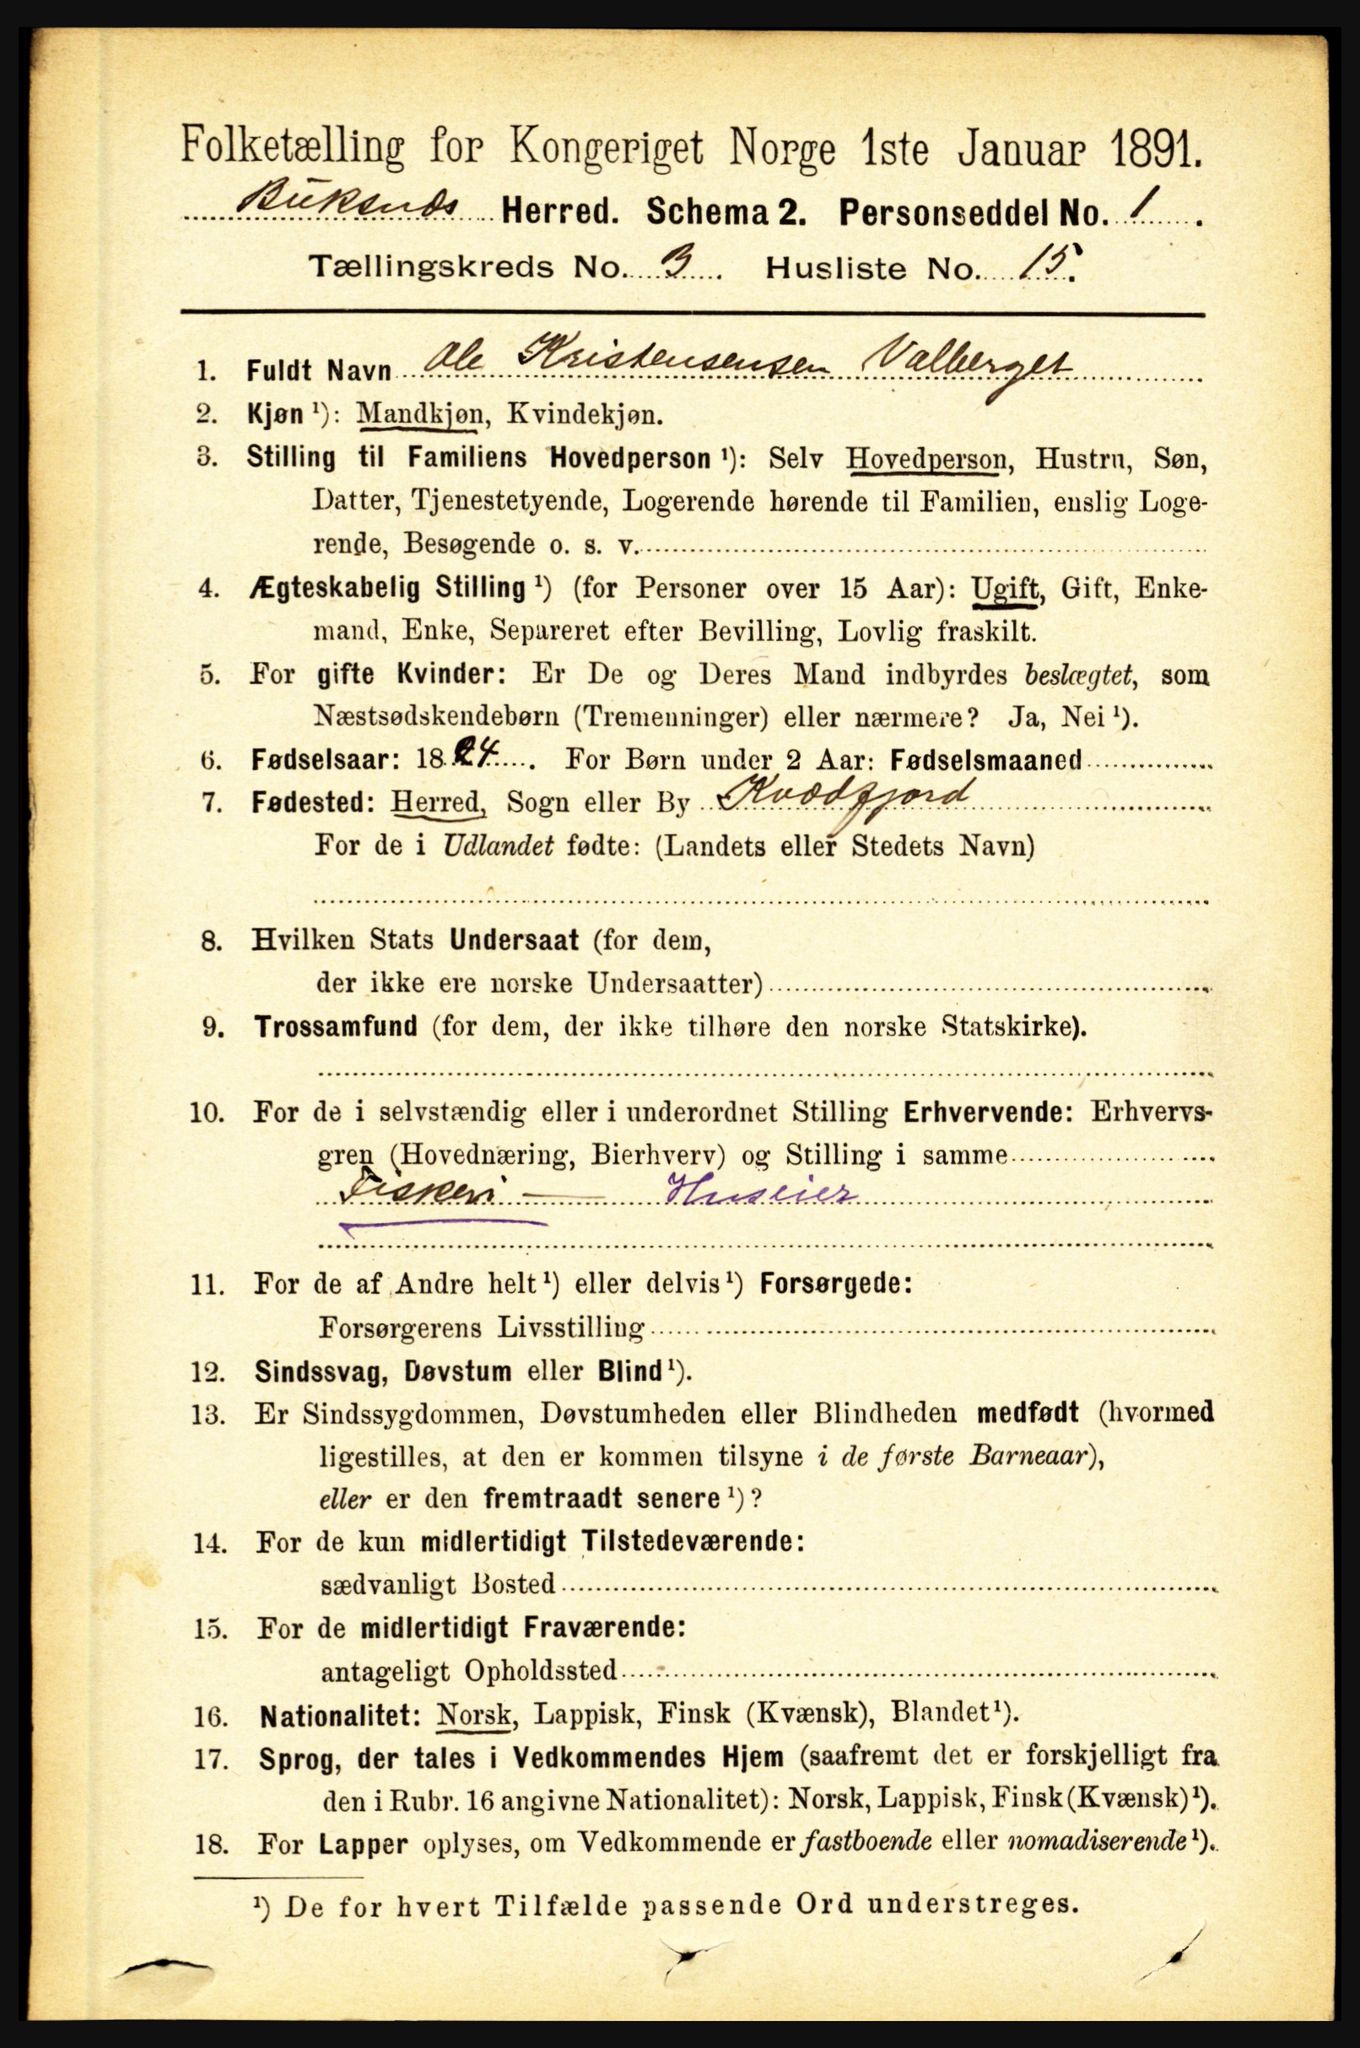 Folketælling for Kongeriget Norge 1ste Januar 1891.
Buksnæs Herred. Schema 2. Personseddel No. 1.
Tællingskreds No. 3. Husliste No. 15.
1. Fuldt Navn Ole Kristensensen Valberget
2. Kjøn ¹): Mandkjøn, Kvindekjøn.
3. Stilling til Familiens Hovedperson ¹): Selv Hovedperson, Hustru, Søn,
Datter, Tjenestetyende, Logerende hørende til Familien, enslig Loge-
rende, Besøgende o. s. v.
4. Ægteskabelig Stilling ¹) (for Personer over 15 Aar): Ugift, Gift, Enke-
mand, Enke, Separeret efter Bevilling, Lovlig fraskilt.
5. For gifte Kvinder: Er De og Deres Mand indbyrdes beslægtet, som
Næstsødskendebørn (Tremenninger) eller nærmere? Ja, Nei ¹).
6. Fødselsaar: 1824. For Børn under 2 Aar: Fødselsmaaned
7. Fødested: Herred, Sogn eller By Kvædfjord
For de i Udlandet fødte: (Landets eller Stedets Navn)
8. Hvilken Stats Undersaat (for dem,
der ikke ere norske Undersaatter)
9. Trossamfund (for dem, der ikke tilhøre den norske Statskirke).
10. For de i selvstændig eller i underordnet Stilling Erhvervende: Erhvervs-
gren (Hovednæring, Bierhverv) og Stilling i samme
Fiskeri — Huseier
11. For de af Andre helt ¹) eller delvis ¹) Forsørgede:
Forsørgerens Livsstilling
12. Sindssvag, Døvstum eller Blind ¹).
13. Er Sindssygdommen, Døvstumheden eller Blindheden medfødt (hvormed
ligestilles, at den er kommen tilsyne i de første Barneaar),
eller er den fremtraadt senere ¹)?
14. For de kun midlertidigt Tilstedeværende:
sædvanligt Bosted
15. For de midlertidigt Fraværende:
antageligt Opholdssted
16. Nationalitet: Norsk, Lappisk, Finsk (Kvænsk), Blandet ¹).
17. Sprog, der tales i Vedkommendes Hjem (saafremt det er forskjelligt fra
den i Rubr. 16 angivne Nationalitet): Norsk, Lappisk, Finsk (Kvænsk) ¹).
18. For Lapper oplyses, om Vedkommende er fastboende eller nomadiserende ¹).
¹) De for hvert Tilfælde passende Ord understreges.